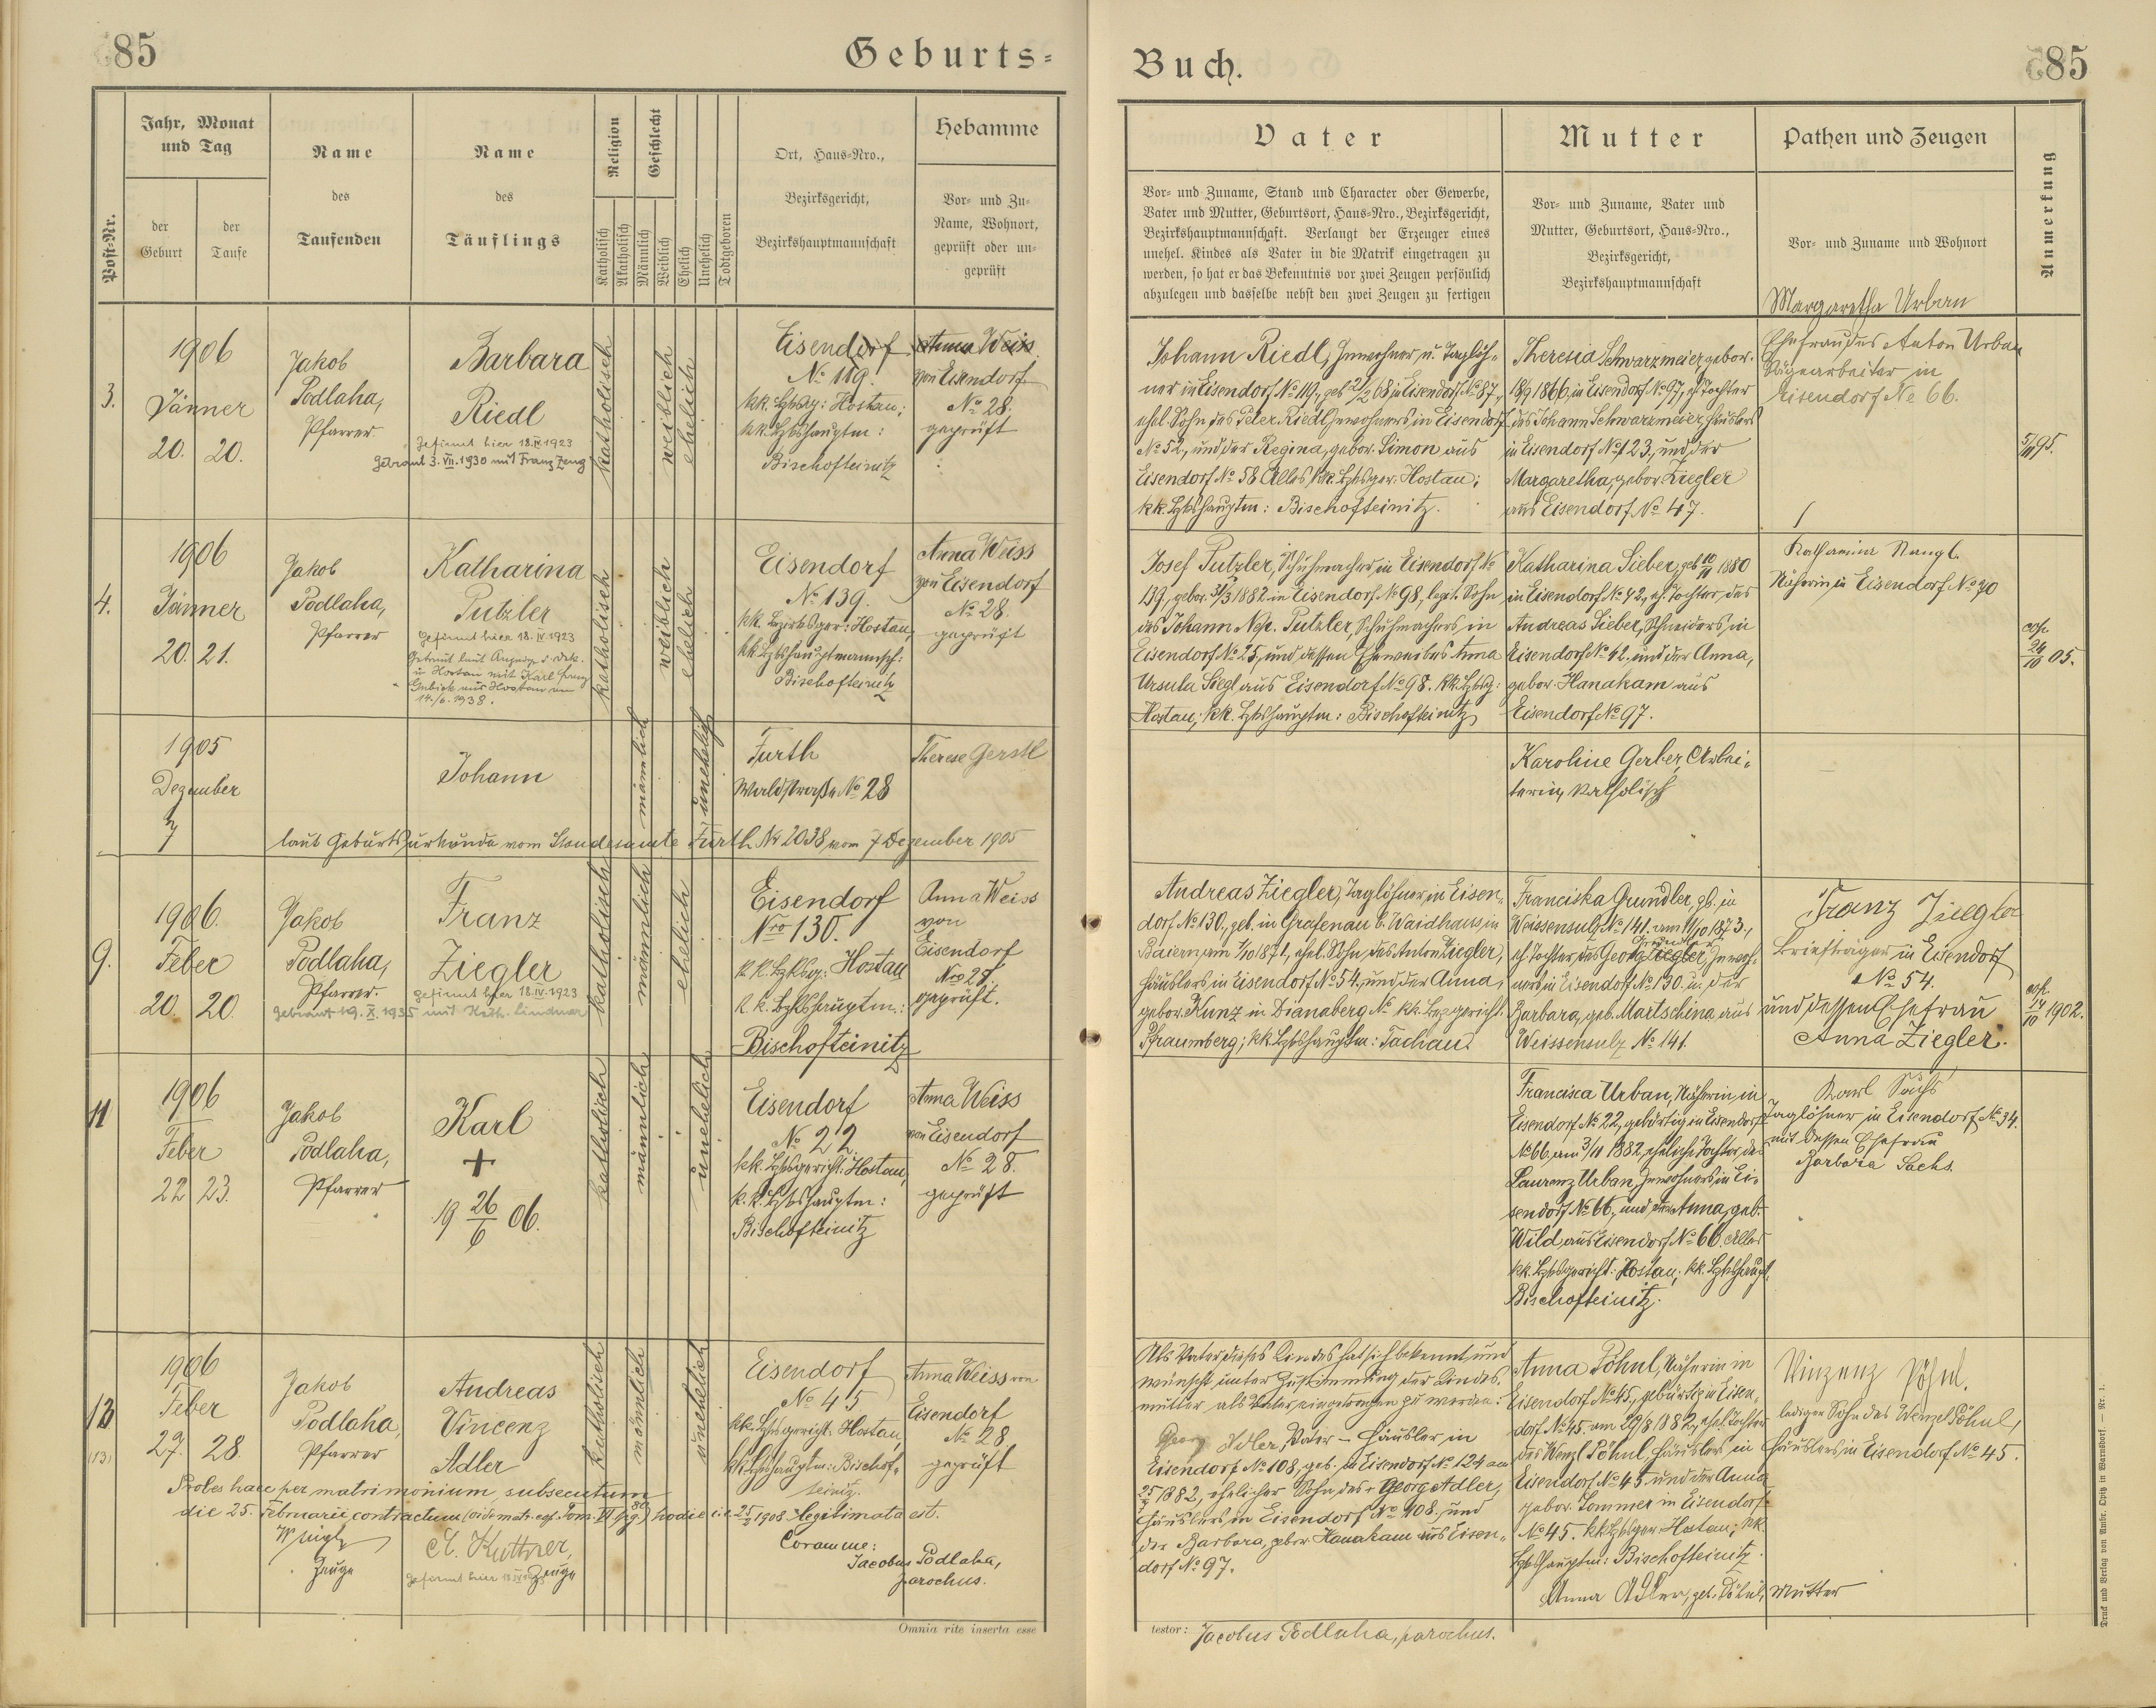 85
Geburts=
Post-Nr.
Jahr, Monat
und Tag
der
Geburt
der
Taufe
Name
des
Taufenden
Name
des
Täuflings
Religion
Katholisch
Akatholisch
Geschlecht
Männlich
Weiblich
Ehelich
Unehelich
Todtgeboren
Ort, Haus=Nro.,
Bezirksgericht,
Bezirkshauptmannschaft
Hebamme
Vor= und Zu=
Name, Wohnort,
geprüft oder un=
geprüft
3.
1906
Jänner
20. 20.
Jakob
Podlaha,
Pfarrer
Barbara
Riedl
Gefirmt hier 18.IV.1923
Getraut 3.VII.1930 mit Franz Zeug
katholisch
weiblich
ehelich
Eisendorf
No 119.
kk. Bzksg: Hostau;
kk. Bzkshauptm:
Bischofteinitz
Anna Weiss
von Eisendorf
No 28.
geprüft
4.
1906
Jänner
20. 21.
Jakob
Podlaha,
Pfarrer
Katharina
Putzler
Gefirmt hier 18.IV.1923
14./6.1938.
katholisch
weiblich
ehelich
Eisendorf
No 139.
kk. Bezirksger: Hostau,
kk Bzkshauptmannsch:
Bischofteinitz
Anna Weiss
von Eisendorf
No 28.
geprüft
1905
Dezember
7
Johann
männlich
unehelich
Furth
Waldstraße No 28
Therese Gerstl
laut Geburtsurkunde vom Standesamte Furth Nr 2038 vom 7 Dezember 1905
9.
1906.
Feber
20. 20.
Jakob
Podlaha,
Pfarrer.
Franz
Ziegler
gefirmt hier 18.IV.1923
getraut 19.X.1935 mit Kath. Lindner
katholisch
männlich
ehelich
Eisendorf
Nro 130.
k.k. Bzksg: Hostau
k.k. Bzkshauptm:
Bischofteinitz
Anna Weiss
von
Eisendorf
Nro 28.
geprüft.
11
1906
Feber
22 23.
Jakob
Podlaha,
Pfarrer
Karl
+
19 26/6 06.
katholisch
männlich
unehelich
Eisendorf
No 22.
kk. Bzksgericht: Hostau,
k.k. Bzkshauptm:
Bischofteinitz
Anna Weiss
von Eisendorf
No 28.
geprüft
13
(13)
1906
Feber
27. 28.
Jakob
Podlaha,
Pfarrer
Andreas
Vincenz
Adler
katholisch
männlich
unehelich
Eisendorf
No 45
kk. Bzksgericht: Hostau,
kk. Bzkshauptm: Bischof-
teinitz.
Anna Weiss von
Eisendorf
No 28.
geprüft
Proles haec per matrimonium subsecutum
die 25. Februarii contractum (vide matr. cop. Tom. VI pg. 80) hodie i.e. 25/2 1908 legitimata est.
Zeuge
A. Kuttner,
Zeuge
Coram me:
Jacobus Podlaha,
parochus.
Omnia rite inserta esse
Buch.
85
Vater
Vor= und Zuname, Stand und Character oder Gewerbe,
Vater und Mutter, Geburtsort, Haus=Nro., Bezirksgericht,
Bezirkshauptmannschaft. Verlangt der Erzeuger eines
unehel. Kindes als Vater in die Matrik eingetragen zu
werden, so hat er das Bekenntnis vor zwei Zeugen persönlich
abzulegen und dasselbe nebst den zwei Zeugen zu fertigen
Mutter
Vor= und Zuname, Vater und
Mutter, Geburtsort, Haus=Nro.,
Bezirksgericht,
Bezirkshauptmannschaft
Pathen und Zeugen
Vor= und Zuname und Wohnort
Anmerkung
Johann Riedl, Inwohner u. Taglöh-
ner in Eisendorf No 119., geb 2/2 68 in Eisendorf No 87.,
ehel Sohn des Peter Riedl Inwohners in Eisendorf
No 52., und der Regina, gebor. Simon aus
Eisendorf No 58 Alles kk. Bzksger. Hostau;
kk. Bzkshauptm: Bischofteinitz.
Theresia Schwarzmeier, gebor.
18/9 1866, in Eisendorf No 97, eh Tochter
des Johann Schwarzmeier Häuslers
in Eisendorf No 123., und der
Margaretha, gebor Ziegler
aus Eisendorf No 47.
Margaretha Urban
Ehefrau des Anton Urban
Sägearbeiter in
Eisendorf No 66.
Josef Putzler, Schuhmacher in Eisendorf No
139, gebor. 31/3 1882 in Eisendorf No 98, legit. Sohn
des Johann Nep. Putzler, Schuhmachers in
Eisendorf No 25, und dessen Eheweibes Anna
Ursula Siegl aus Eisendorf No 98. kk. Bzksg:
Hostau; kk. Bzkshauptm: Bischofteinitz
Katharina Sieber, geb 10/11 1880
in Eisendorf No 42., eh. Tochter des
Andreas Sieber, Schneiders, in
Eisendorf No 42. und der Anna,
gebor. Hanakam aus
Eisendorf No 97.
Katharina Nangl.
Näherin in Eisendorf No 70
cop.
24/10 05.
Karoline Gerber Arbei-
terin, katholisch
Andreas Ziegler, Taglöhner in Eisen-
dorf No 130., geb. in Grafenau b. Waidhaus in
Baiern am 1/10 1871, ehel. Sohn des Anton Ziegler,
Häuslers in Eisendorf No 54., und der Anna,
gebor. Kunz in Dianaberg No kk. Bezgericht:
Pfraumberg; kk Bzkshauptm: Tachau.
Franciska Grundler, gb. in
Weissensulz No 141. am 11/10 1873.,
eh. Tochter des Georg Ziegler, Inwoh-
Grundler
ners in Eisendorf No 130. u. der
Barbara, geb. Martschina aus
Weissensulz No 141.
Franz Ziegler
Briefträger in Eisendorf
No 54.
und dessen Ehefrau
Anna Ziegler.
cop.
14/10 1902.
Francisca Urban, Näherin in
Eisendorf No 22, gebürtig in Eisendorf
No 66, am 3/11 1882, eheliche Tochter des
Laurenz Urban, Inwohners in Ei-
sendorf No 66., und der Anna, geb.
Wild, aus Eisendorf No 66. Alles
kk. Bzksgericht: Hostau; kk. Bzkshaupt.
Bischofteinitz.
Karl Sachs
Taglöhner in Eisendorf No 34.
mit dessen Ehefrau
Barbara Sachs.
Als Vater dieses Kindes hat sich bekennt und
wünscht unter Zustimmung der Kindes-
mutter als Vater eingetragen zu werden:
Georg Adler, Vater – Häusler in
Eisendorf No 108., geb. in Eisendorf No 124 am
1882, ehelicher Sohn des + Georg Adler,
Häuslers in Eisendorf No 108. und
der Barbara, gebor. Hanakam aus Eisen-
dorf No 97.
Anna Pöhnl, Näherin in
Eisendorf No 45., gebürtig in Eisen-
dorf No 45. am 29/8 1882., ehel. Tochter
des Wenzl Pöhnl, Häuslers in
Eisendorf No 45 und der Anna
gebor. Sommer in Eisendorf
No 45. kk Bzksger: Hostau; kk.
Bzkshauptm: Bischofteinitz.
Anna Adler, geb. Pöhnl, Mutter
Vinzenz Pöhnl.
ledigen Sohn des Wenzel Pöhnl,
Häuslers in Eisendorf No 45.
testor: Jacobus Podlaha, parochus.
Druck und Verlag von Ambr. Opitz in Warnsdorf. — Nr. 1.